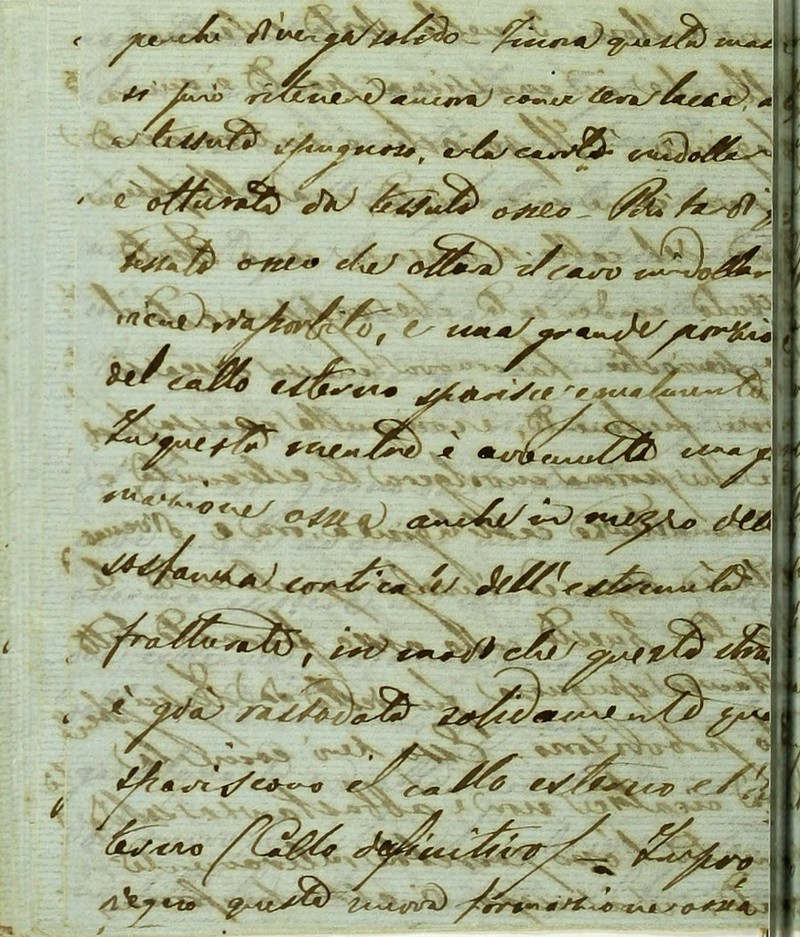 perche divenga solido – Finora questa mas
si può ritenere ancora come cera lacca, a
a tessuto spugnoso, e la cavità midollar
è otturata da tessuto osseo – Più tardi
tessuto osseo che ottura il cavo midollar
viene riassorbito, e una grande porzio
del callo esterno sparisce egualmente
In questo mentre è avvenuta una
mazione ossea anche in mezzo dell
sostanza corticale dell'estremità
fratturate, in modo che questa
è già rassodata solidamente qua
spariscono il callo esterno e l'i
terno (Callo definitivo) – In pro
segno questa nuova formazione ossea